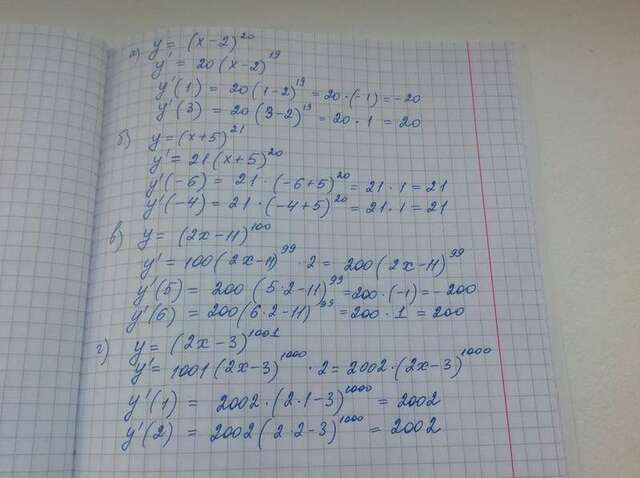 а) y = (x-2)^20
y' = 20(x-2)^19
y'(1) = 20(1-2)^19 = 20·(-1) = -20
y'(3) = 20(3-2)^19 = 20·1 = 20
б) y = (x+5)^21
y' = 21(x+5)^20
y'(-6) = 21·(-6+5)^20 = 21·1 = 21
y'(-4) = 21·(-4+5)^20 = 21·1 = 21
в) y = (2x-11)^100
y' = 100(2x-11)^99 · 2 = 200(2x-11)^99
y'(5) = 200(5·2-11)^99 = 200·(-1) = -200
y'(6) = 200(6·2-11)^99 = 200·1 = 200
г) y = (2x-3)^1001
y' = 1001(2x-3)^1000 · 2 = 2002·(2x-3)^1000
y'(1) = 2002·(2·1-3)^1000 = 2002
y'(2) = 2002(2·2-3)^1000 = 2002